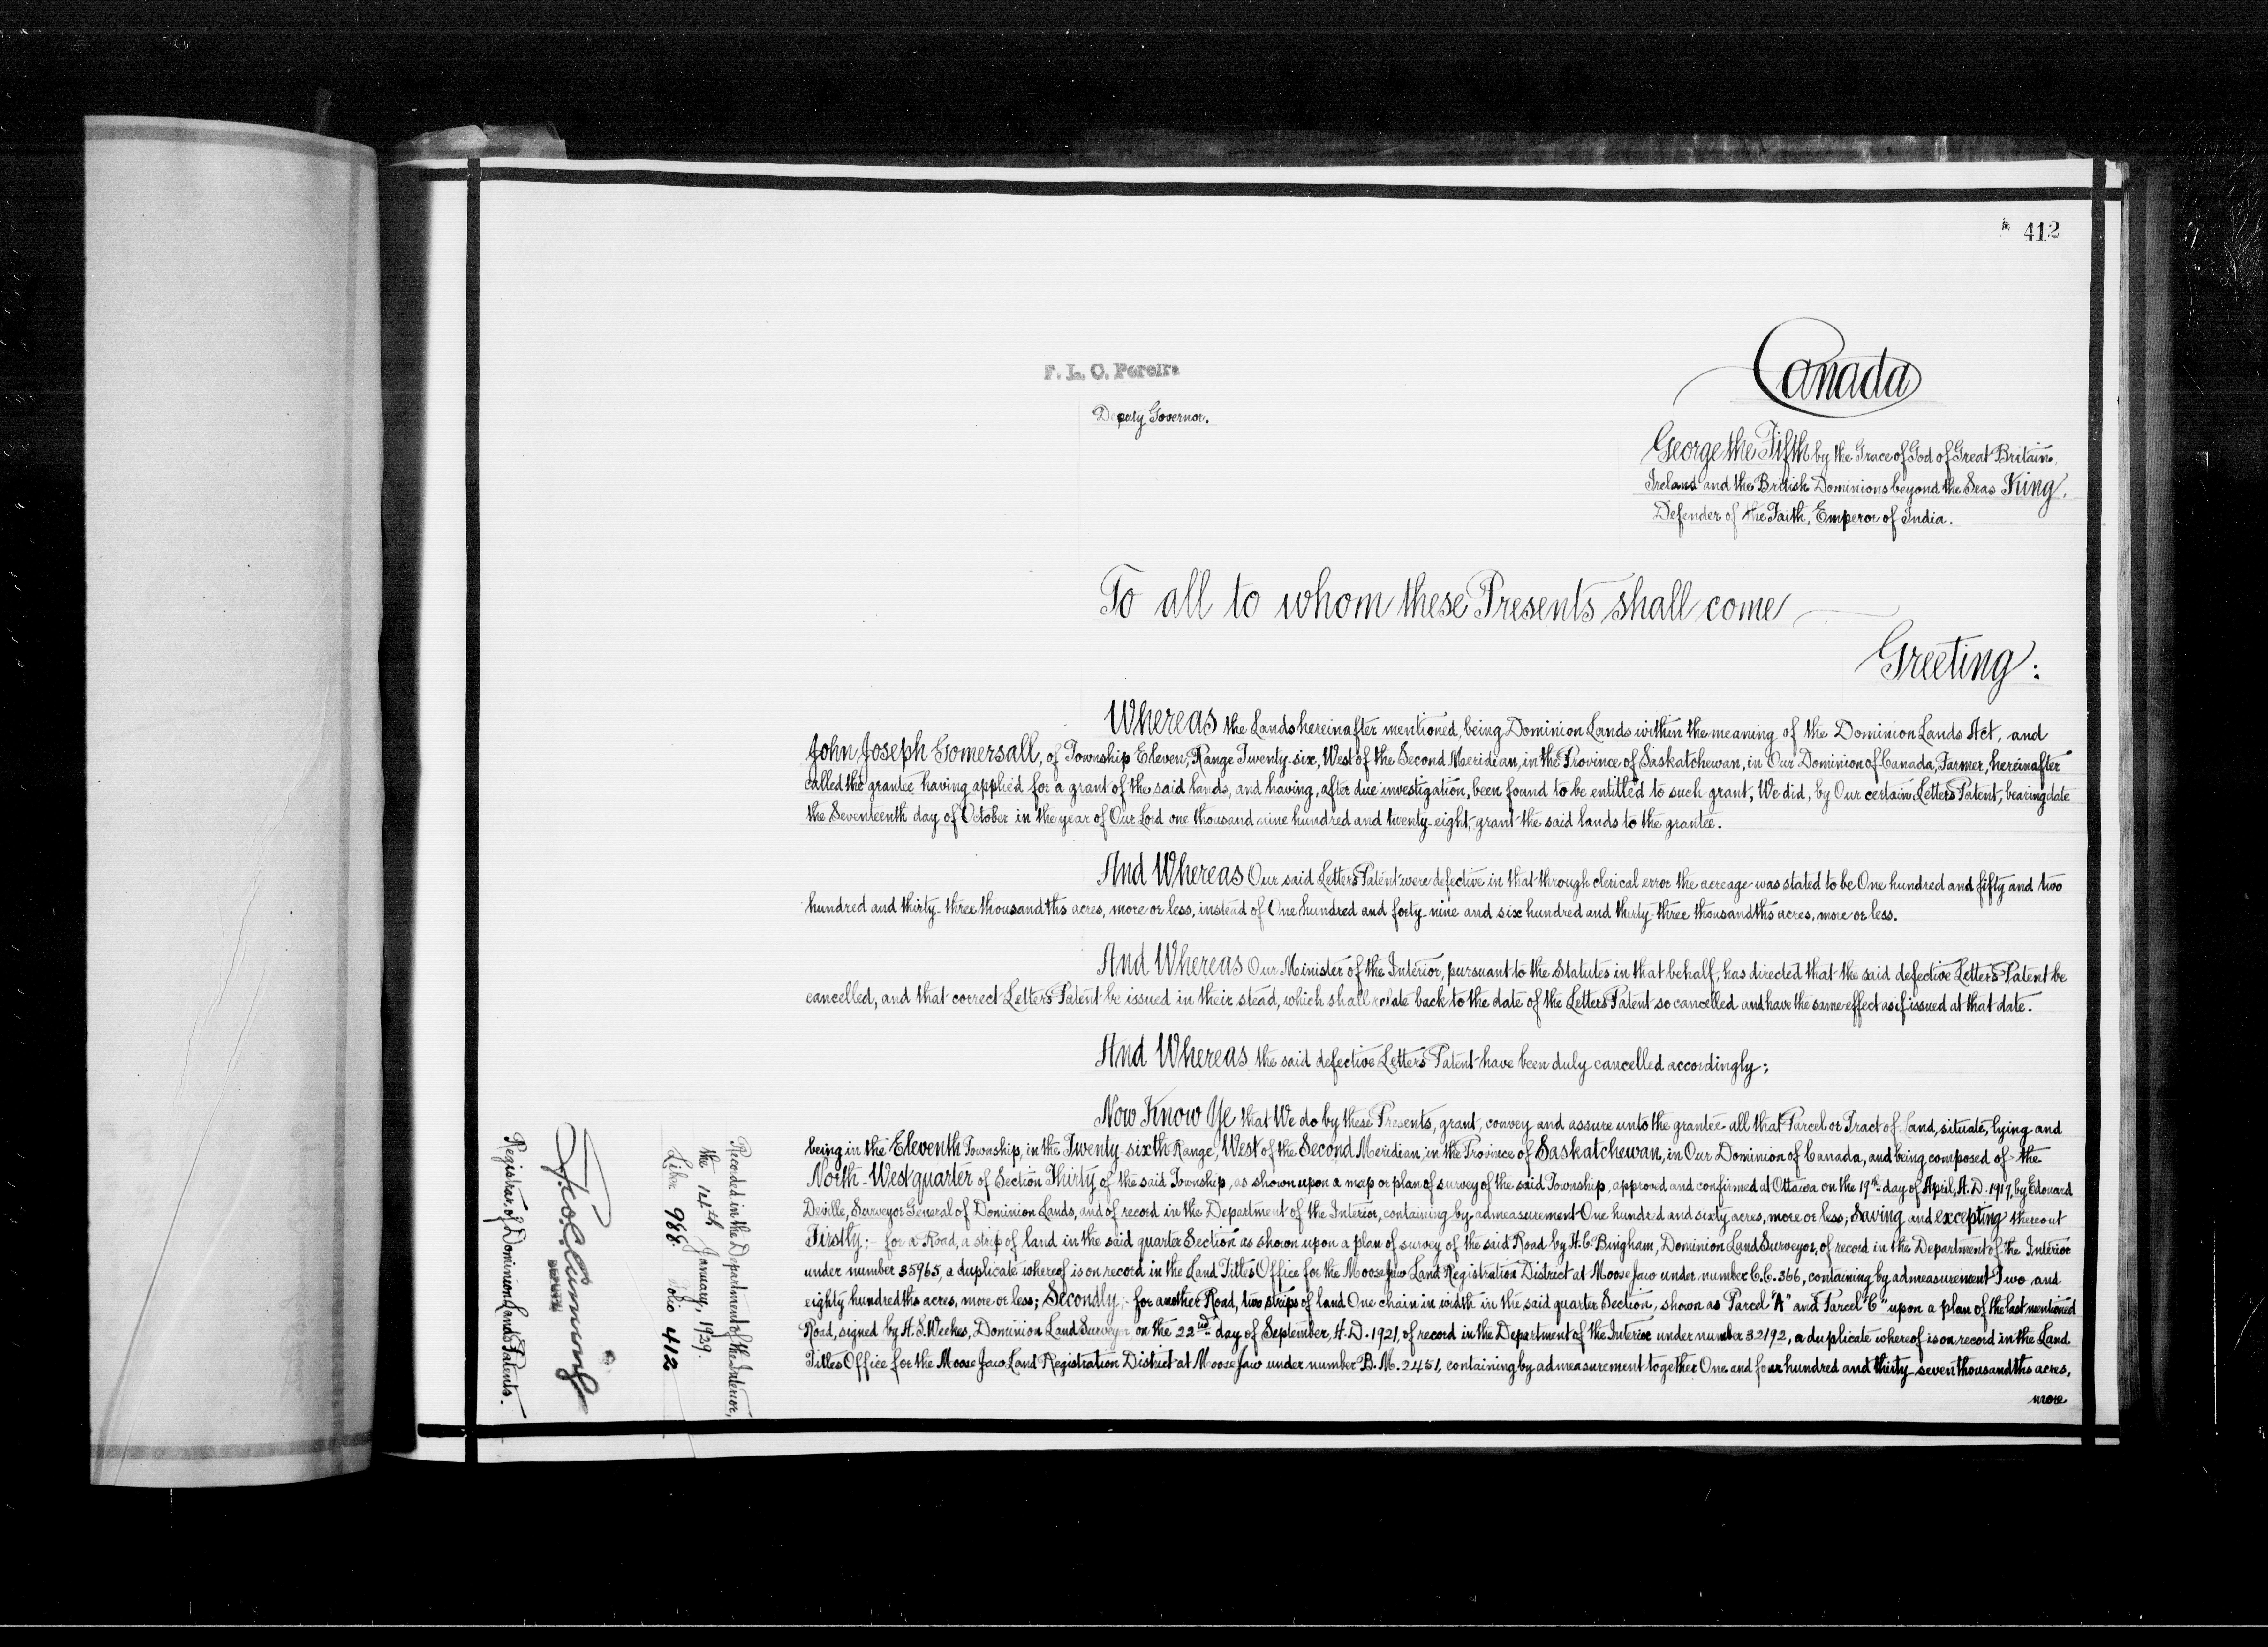 412
Canada
F. L. C. Pereira
Deputy Governor.
George the Fifth by the Grace of God of Great Britain,
Ireland and the British Dominions beyond the Seas King,
Defender of the Faith, Emperor of India.
To all to whom these Presents shall come
Greeting:
Whereas the Lands hereinafter mentioned, being Dominion Lands within the meaning of the Dominion Lands Act, and
John Joseph Gomersall, of Township Eleven, Range Twenty-six, West of the Second Meridian, in the Province of Saskatchewan, in Our Dominion of Canada, Farmer, hereinafter
called the grantee having applied for a grant of the said lands, and having, after due investigation, been found to be entitled to such grant, We did, by Our certain Letters Patent, bearing date
the Seventeenth day of October in the year of Our Lord one thousand nine hundred and twenty-eight, grant the said lands to the grantee.
And Whereas Our said Letters Patent were defective in that through clerical error the acreage was stated to be One hundred and fifty and two
hundred and thirty-three thousandths acres, more or less, instead of One hundred and forty-nine and six hundred and thirty-three thousandths acres, more or less.
And Whereas Our Minister of the Interior, pursuant to the Statutes in that behalf, has directed that the said defective Letters Patent be
cancelled, and that correct Letters Patent be issued in their stead, which shall relate back to the date of the Letters Patent so cancelled and have the same effect as if issued at that date.
And Whereas the said defective Letters Patent have been duly cancelled accordingly;
Now Know Ye that We do by these Presents, grant, convey and assure unto the grantee all that Parcel or Tract of Land, situate, lying and
being in the Eleventh Township, in the Twenty-sixth Range, West of the Second Meridian, in the Province of Saskatchewan, in Our Dominion of Canada, and being composed of the
North-West quarter of Section Thirty of the said Township, as shown upon a map or plan of survey of the said Township, approved and confirmed at Ottawa on the 19th day of April, A.D. 1917, by Edouard
Deville, Surveyor General of Dominion Lands, and of record in the Department of the Interior, containing by admeasurement One hundred and sixty acres, more or less; Saving and excepting thereout
Firstly:- for a Road, a strip of land in the said quarter Section as shown upon a plan of survey of the said Road by H. C. Bingham, Dominion Land Surveyor, of record in the Department of the Interior
under number 35965, a duplicate whereof is on record in the Land Titles Office for the Moose Jaw Land Registration District at Moose Jaw under number C.C. 366, containing by admeasurement Two and
eighty hundredths acres, more or less; Secondly:- for another Road, two strips of land One chain in width in the said quarter Section, shown as Parcel "A" and Parcel "C" upon a plan of the last mentioned
Road, signed by A. S. Weekes, Dominion Land Surveyor on the 22nd day of September, A.D. 1921, of record in the Department of the Interior under number 32192, a duplicate whereof is on record in the Land
Titles Office for the Moose Jaw Land Registration District at Moose Jaw under number B.M. 2451, containing by admeasurement together One and four hundred and thirty-seven thousandths acres,
more
Recorded in the Department of the Interior,
the 14th January, 1929.
Liber 988 Folio 412
DEPUTY
Registrar of Dominion Lands Patents.